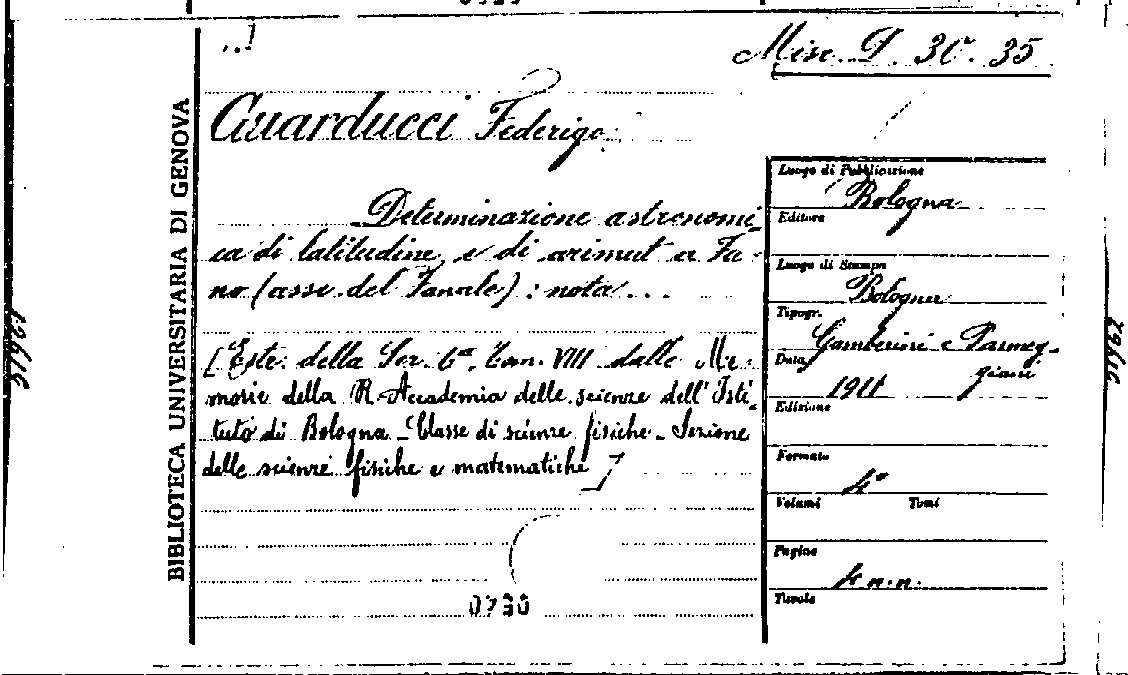 Misc. D. 30. 35
BIBLIOTECA UNIVERSITARIA DI GENOVA
Guarducci Federigo
Determinazione astronomi-
ca di latitudine, e di azimut a Fa-
no (asse del Fanale): nota...
[Estr. della Ser. 6a. Tom. VIII dalle Me-
morie della R. Accademia delle scienze dell'Isti-
tuto di Bologna - Classe di scienze fisiche - Sezione
delle scienze fisiche e matematiche]
0730
Luogo di Pubblicazione
Bologna
Editore
Luogo di Stampa
Bologna
Tipogr.
Gamberini e Parmeg-
giani
Data
1911
Edizione
Formato
4°
Volumi Tomi
Pagine
4 n.n.
Tavole